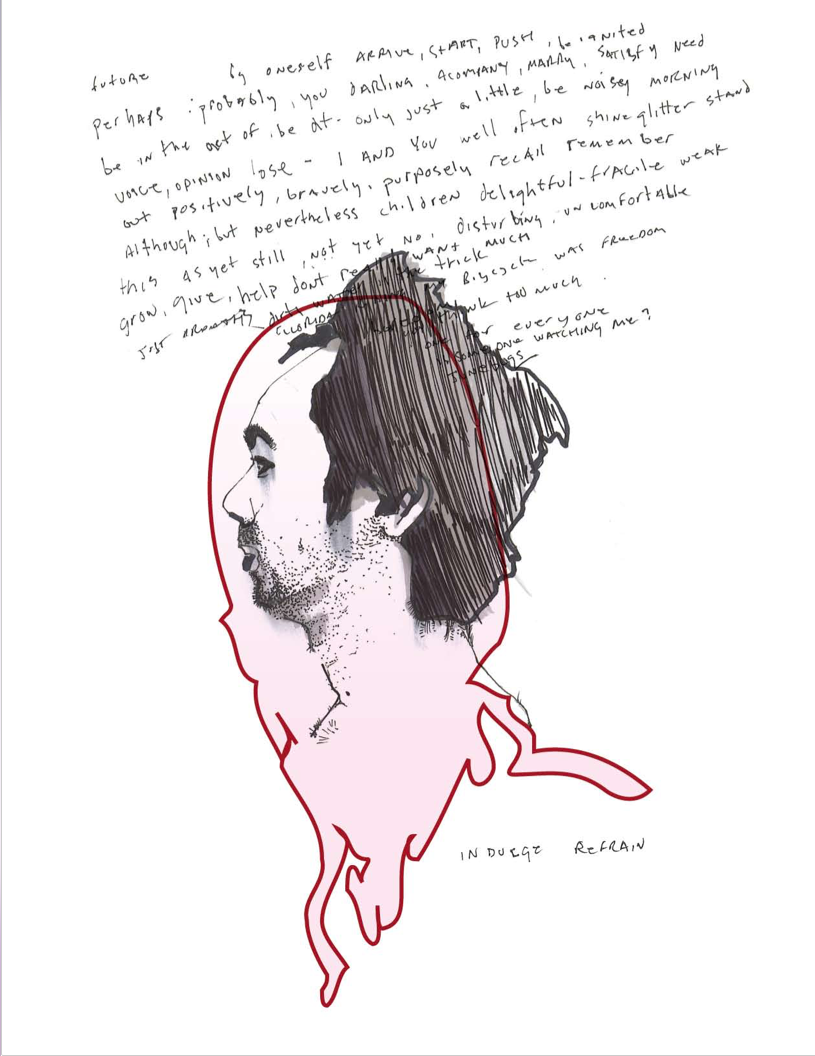 future by oneself ARRIVE, START, PUSH, be ignited
perhaps : probably, you DARLING, ACOMPANY, MARRY, SATISFY NEED
be in the act of : be at - only just a little, be noisy MORNING
voice, OPINION lose - I AND YOU well often shine glitter stand
out positively, bravely, purposely recall remember
Although ; but nevertheless children delightful - fragile weak
this as yet still, not yet no, disturbing, uncomfortable
grow, give, help don't WANT MUCH
JUST the trick
Bicycle was FREEDOM
too much.
for everyone
WATCHING ME?
INDULGE REFRAIN